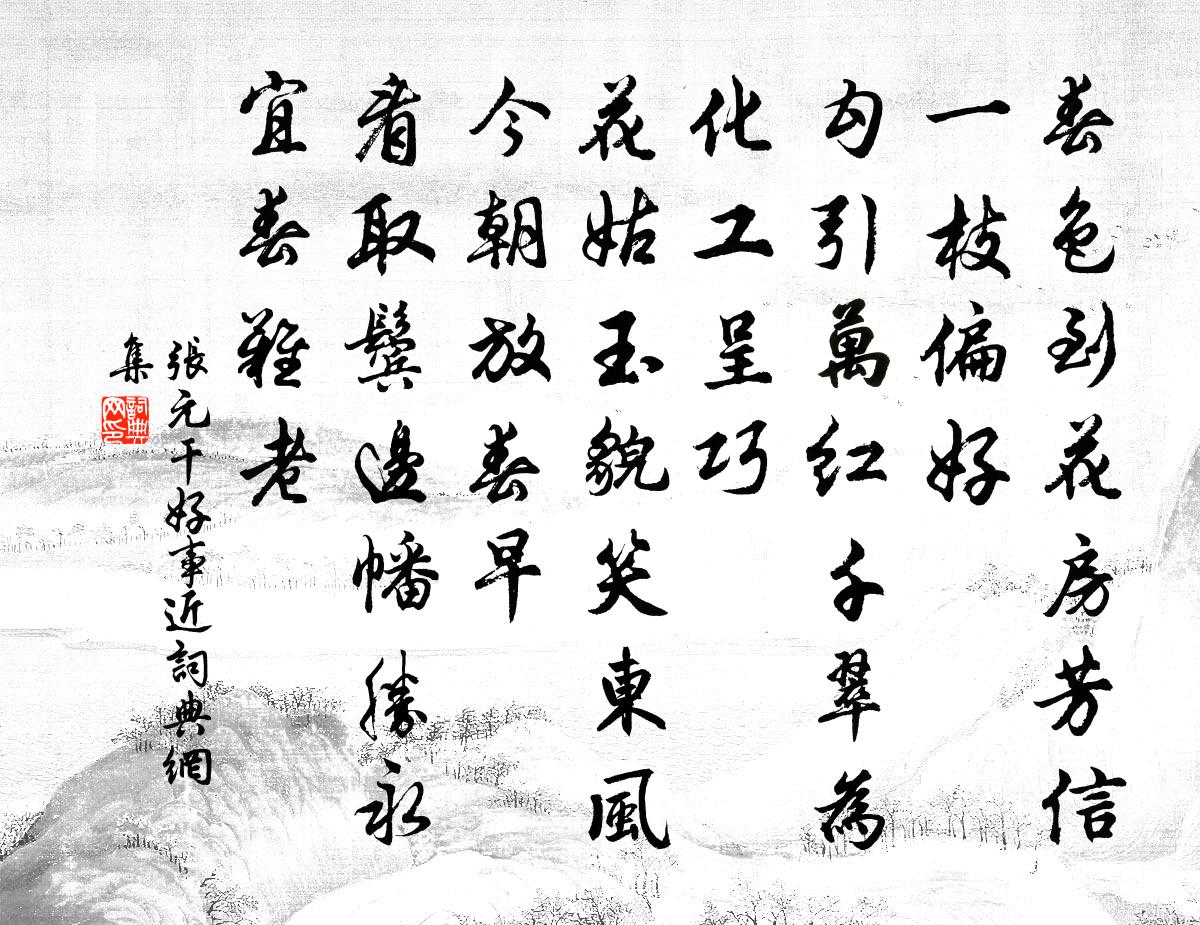 春色到花房芳信
一枝偏好
勾引萬紅千翠為
化工呈巧
花姑玉貌笑東風
今朝放春早
看取鬓邊幡勝永
宜春難老
張元干好事近詞典網
集
詞典
网印